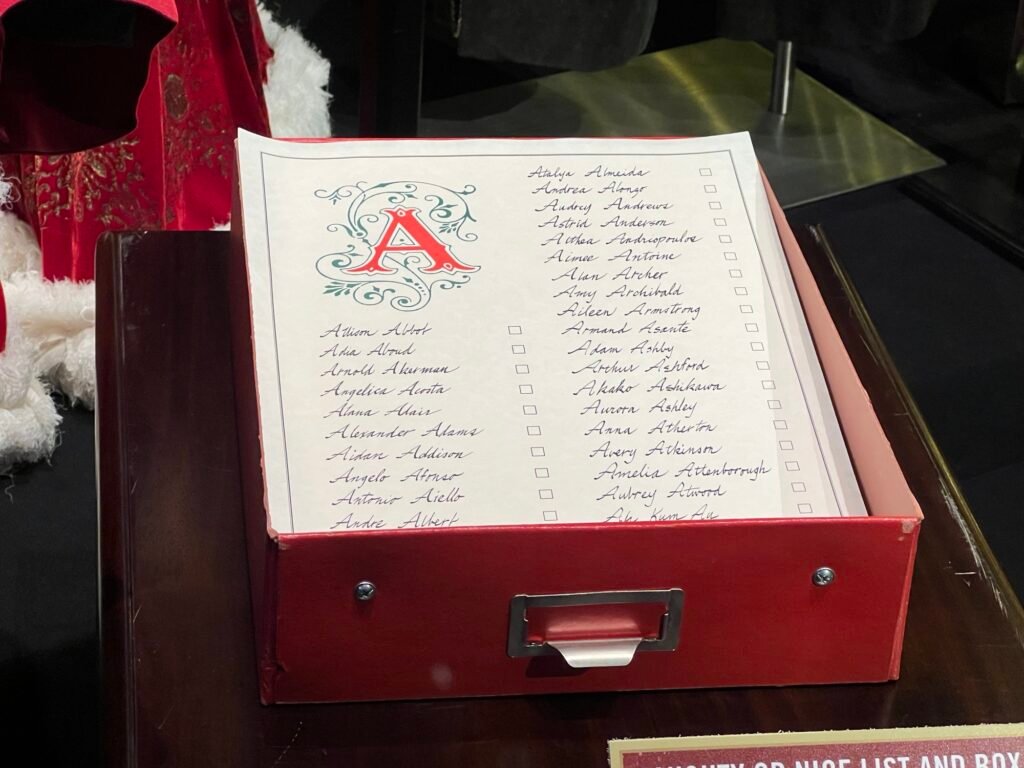 A
Allison Abbot
Adia Aboud
Arnold Akerman
Angelica Acosta
Alana Adair
Alexander Adams
Aidan Addison
Angelo Afonso
Antonio Aiello
Andre Albert
Atalya Almeida
Andrea Alongo
Audrey Andrews
Astrid Anderson
Althea Andriopoulos
Aimee Antoine
Alan Archer
Amy Archibald
Aileen Armstrong
Armand Asante
Adam Ashby
Arthur Ashford
Akako Ashikawa
Aurora Ashley
Anna Atherton
Avery Atkinson
Amelia Attenborough
Aubrey Atwood
Kum Au
OR NICE LIST AND BOX